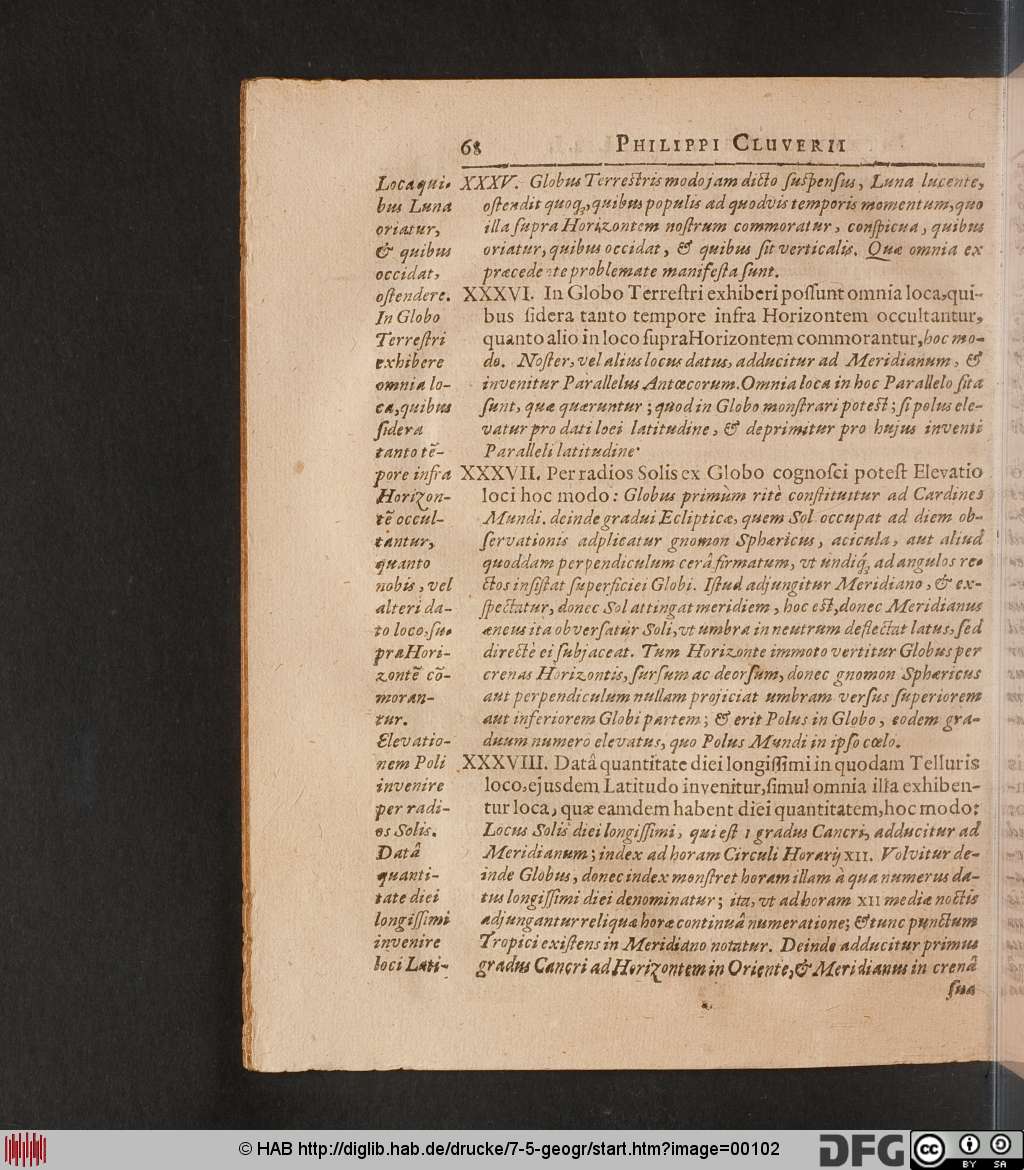 68 PHILIPPI CLUVERII
Loca qui-
bus Luna
oriatur,
& quibus
occidat,
ostendere.
In Globo
Terrestri
exhibere
omnia lo-
ca, quibus
sidera
tanto tē-
pore infra
Horizon-
tē occul-
tantur,
quanto
nobis, vel
alteri da-
to loco, su-
pra Hori-
zontē cō-
moran-
tur.
Elevatio-
nem Poli
invenire
per radi-
os Solis.
Datâ
quanti-
tate diei
longissimi
invenire
loci Lati-
XXXV. Globus Terrestris modo jam dicto suspensus, Luna lucente,
ostendit quoq;, quibus populis ad quodvis temporis momentum, quo
illa supra Horizontem nostrum commoratur, conspicua, quibus
oriatur, quibus occidat, & quibus sit verticalis. Quæ omnia ex
præcedente problemate manifesta sunt.
XXXVI. In Globo Terrestri exhiberi possunt omnia loca, qui-
bus sidera tanto tempore infra Horizontem occultantur,
quanto alio in loco supra Horizontem commorantur, hoc mo-
do. Noster, vel alius locus datus, adducitur ad Meridianum, &
invenitur Parallelus Antœcorum. Omnia loca in hoc Parallelo sita
sunt, quæ quæruntur; quod in Globo monstrari potest; si polus ele-
vatur pro dati loci latitudine, & deprimitur pro hujus inventi
Paralleli latitudine.
XXXVII. Per radios Solis ex Globo cognosci potest Elevatio
loci hoc modo: Globus primùm ritè constituitur ad Cardines
Mundi. deinde gradui Eclipticæ, quem Sol occupat ad diem ob-
servationis adplicatur gnomon Sphæricus, acicula, aut aliud
quoddam perpendiculum cerâ firmatum, vt undiq; ad angulos re-
ctos insistat superficiei Globi. Istud adjungitur Meridiano, & ex-
spectatur, donec Sol attingat meridiem, hoc est, donec Meridianus
æneus ita obversatur Soli, vt umbra in neutrum deflectat latus, sed
directè ei subjaceat. Tum Horizonte immoto vertitur Globus per
crenas Horizontis, sursum ac deorsum, donec gnomon Sphæricus
aut perpendiculum nullam projiciat umbram versus superiorem
aut inferiorem Globi partem; & erit Polus in Globo, eodem gra-
duum numero elevatus, quo Polus Mundi in ipso cœlo.
XXXVIII. Datâ quantitate diei longissimi in quodam Telluris
loco, ejusdem Latitudo invenitur, simul omnia illa exhiben-
tur loca, quæ eamdem habent diei quantitatem, hoc modo:
Locus Solis diei longissimi, qui est 1 gradus Cancri, adducitur ad
Meridianum; index ad horam Circuli Horarij XII. Volvitur de-
inde Globus, donec index monstret horam illam à qua numerus da-
tus longissimi diei denominatur; ita, vt ad horam XII mediæ noctis
adjungantur reliquæ horæ continuâ numeratione; & tunc punctum
Tropici existens in Meridiano notatur. Deinde adducitur primus
gradus Cancri ad Horizontem in Oriente, & Meridianus in crenâ
sua
© HAB http://diglib.hab.de/drucke/7-5-geogr/start.htm?image=00102
DFG
cc
BY SA